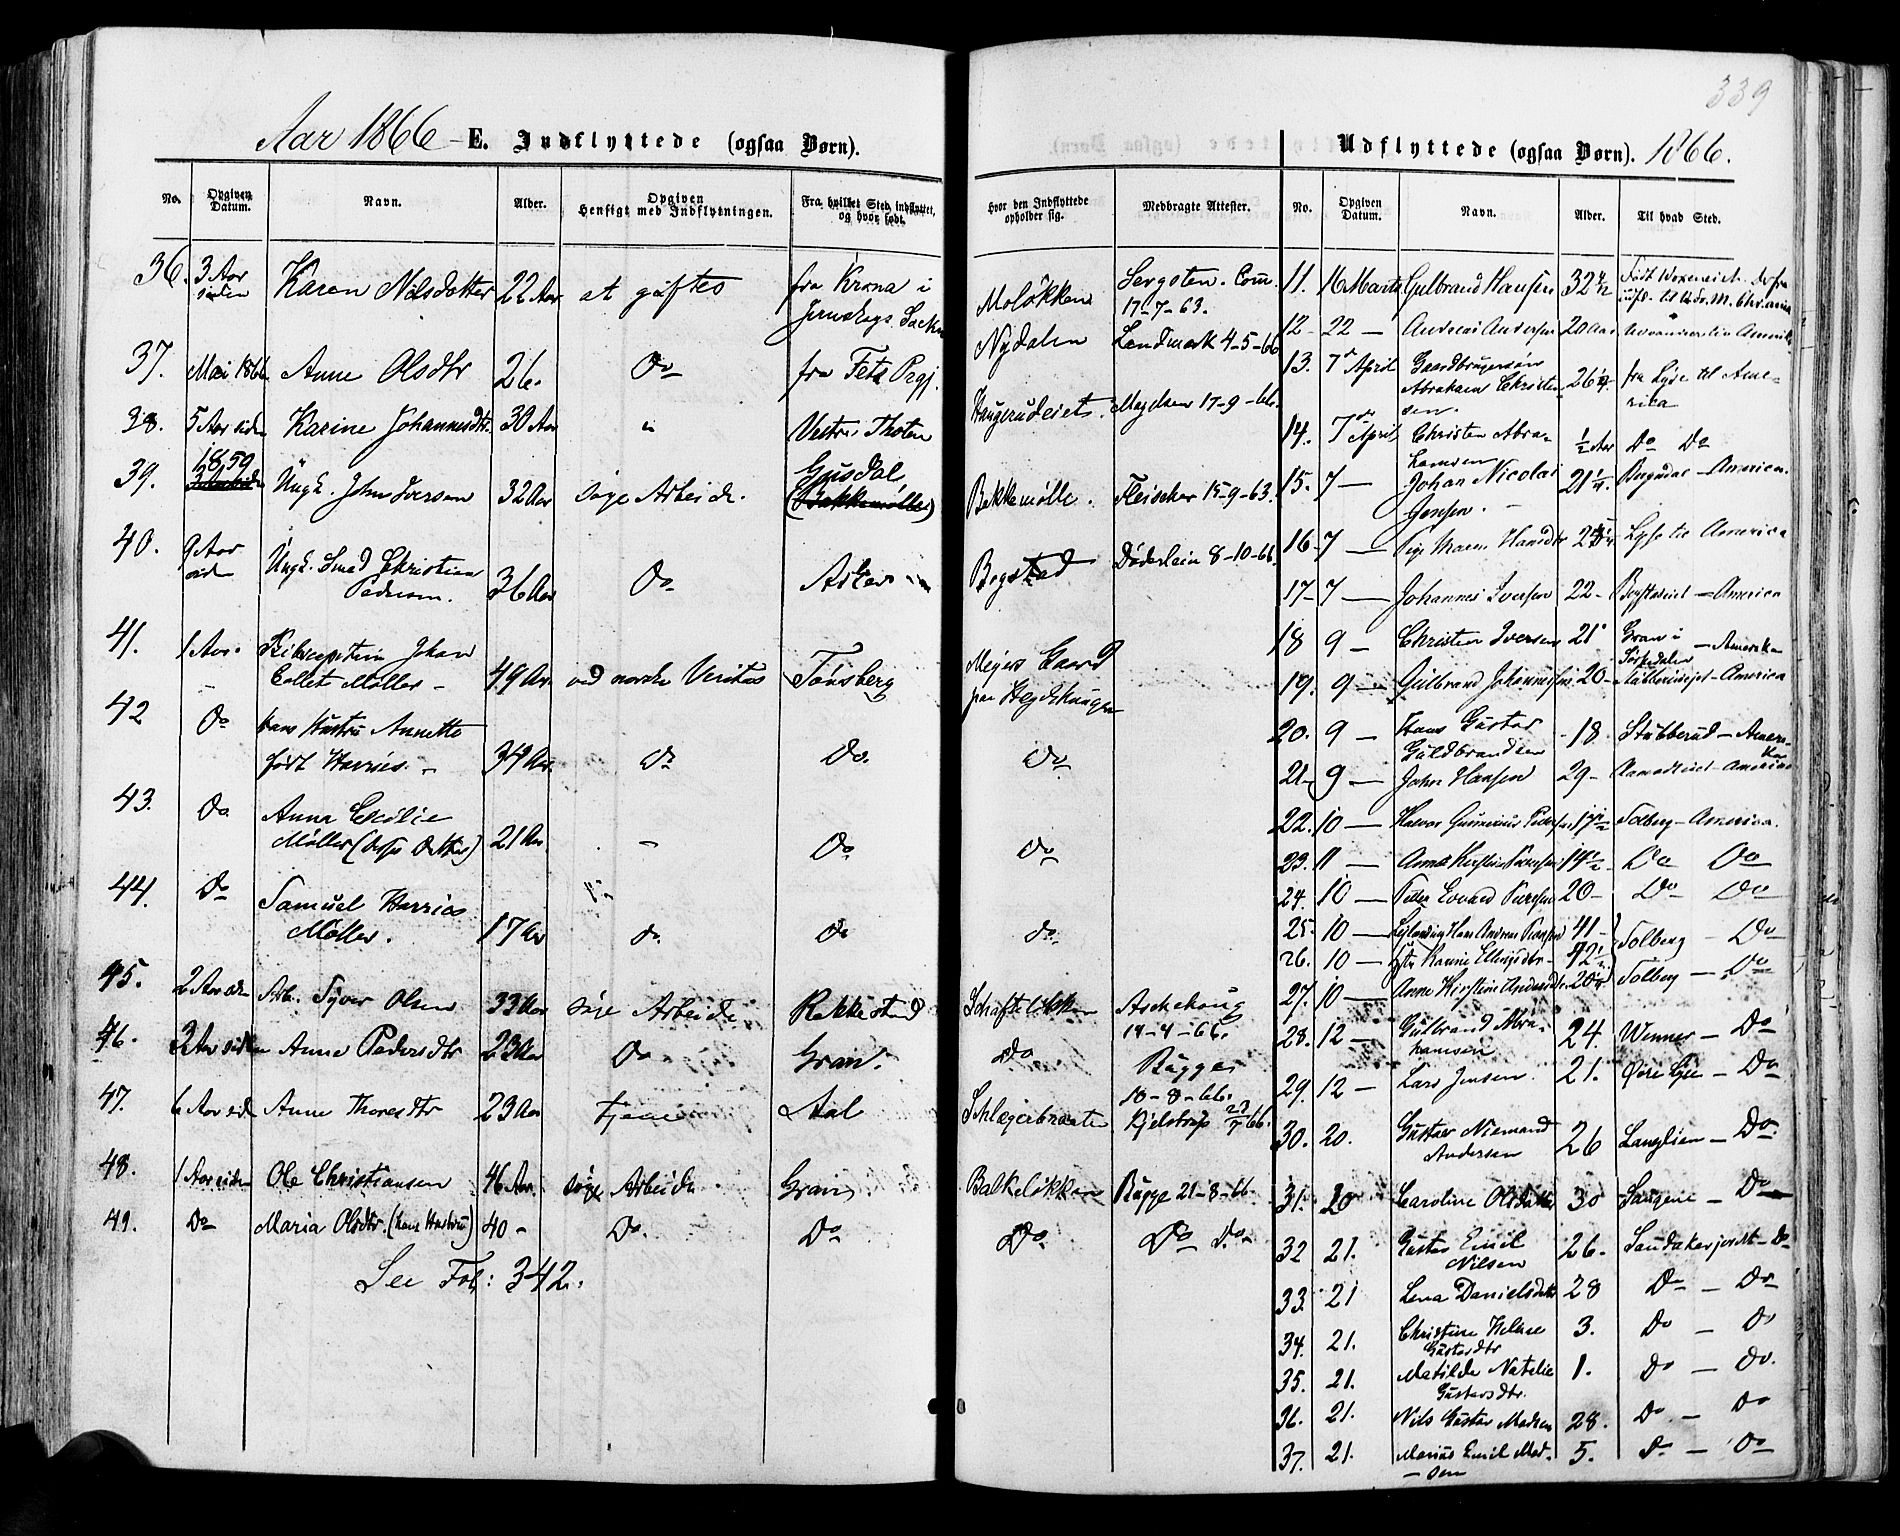 339
Aar 1866 – E. Indflyttede (ogsaa Børn).
No. Opgiven Datum. Navn. Alder. Opgiven Hensigt med Indflytningen. Fra hvilket Sted indflyttet, og hvor født. Hvor den Indflyttede opholder sig. Medbragte Attester.
36. 3 Aar siden Karen Nilsdatter 22 Aar at giftes fra Krona i Sackn Moløkken 17-7-63.
37. Mai 1866 Anne Olsdtr 26. Do fra Fets Prgj. Nydalen Landmark 4-5-66
38. 5 Aar siden Karine Johannesdtr. 30 Aar " Vestre Thoten Haugerudeiet. 17-9-66.
39. 1859 Ungk. John Iversen 32 Aar søge Arbeide. Gusdal, (Bakkemøllen) Bakkemølle. Fleischer 15-9-63.
40. 9 Aar sid Ungk. Smed Christian Pedersen. 36 Aar Do Asker Bogstad Døderlein 8-10-66.
41. 1 Aar. Johan Collet Møller – 49 Aar. ved norske Veritas Tønsberg Meyers Gaard paa Hegdehaugen
42 Do hans Hustru Annette født Harries. – 34 Aar. Do Do. Do
43. Do. Anna Cecilie Møller (deres Datter) 21 Aar – Do Do
44. Do Samuel Harries Møller. 17 Aar do. Do do.
45. 2 Aar siden Arb. Syver Olsen 33 Aar søge Arbeide Rakkestad Schafteløkken Aschehoug 14-4-66.
46. 3 Aar siden Anne Pedersdtr 23 Aar Do Gran. Do Bugge 18-8-66.
47. 6 Aar sid Anne Thoresdtr 23 Aar tjene Aal Schlægerbraaten Kjelstrup 23/7 66.
48. 1 Aar siden Ole Christiansen 46 Aar. søge Arbeide Gran Balkeløkken Bugge 21-8-66
49. Do Maria Olsdtr. (hans Hustru) 40 – Do. Do Do Do Do
See Fol: 342.
Udflyttede (ogsaa Børn). 1866.
No. Opgiven Datum. Navn. Alder. Til hvad Sted.
11. 16 Marts Gulbrand Hansen 32 Født
12 – 22 – Andreas Andersen 20 Aar
13. 7de April Gaardbrugersøn Abraham Christensen. 26 fra Lyse til America
14. 7de April Christen Abrahamsen ½ Aar Do Do
15. 7 – Johan Nicolai Jensen. 21 – America
16 – 7 – Pige Maren Hansdtr Lyse til America
17 – 7 – Johannes Iversen 22 – Bogstadeiet – America
18 9 – Christian Iversen 21 Gran i Sørkedalen – Amerika
19. 9 – Gulbrand Johannesen 20 – Stubberudejet – America
20. 9 – Hans Gustav Guldbrandsen – 18. Stubberud – Amerika
21 – 9 – Johan Hansen 29 – Aamodteiet – America
22. 10 – Halvor Gunerius Pedersen 17½ Solberg – America.
23. 11 – Anne Kirstine 14½ Do Do
24. 10 – Peder Edvard 20 – Do Do
25 – 10 – Hans Andreas Hansen 41 – Solberg – Do
26. 10 – Karine Ellingsdtr – 42½
27. 10 – Anne Kirstine Andersdtr 20 Solberg – Do
28. 12 – Gulbrand Abrahamsen 24. Winner – Do
29. 12 – Lars Jensen. 21. Øvre Lyse – Do
30. 20. Gustav Niemand Andersen 26 Langlien – Do
31. 20 Caroline Olsdatter 30 Sangene – Do
32 21. Gustav Emil Nilsen 26. Sandakerjordet – Do
33. 21 Lena Danielsdatter 28 Do – Do
34. 21. Christine Helene Gustavsdtr 3. Do – Do
35. 21. Matilde Natalie Gustavsdtr. 1. Do – Do.
36. 21. Nils Gustav Madsen 28. Do. – Do
37. 21. Marius Emil Madsen 5. Do – Do